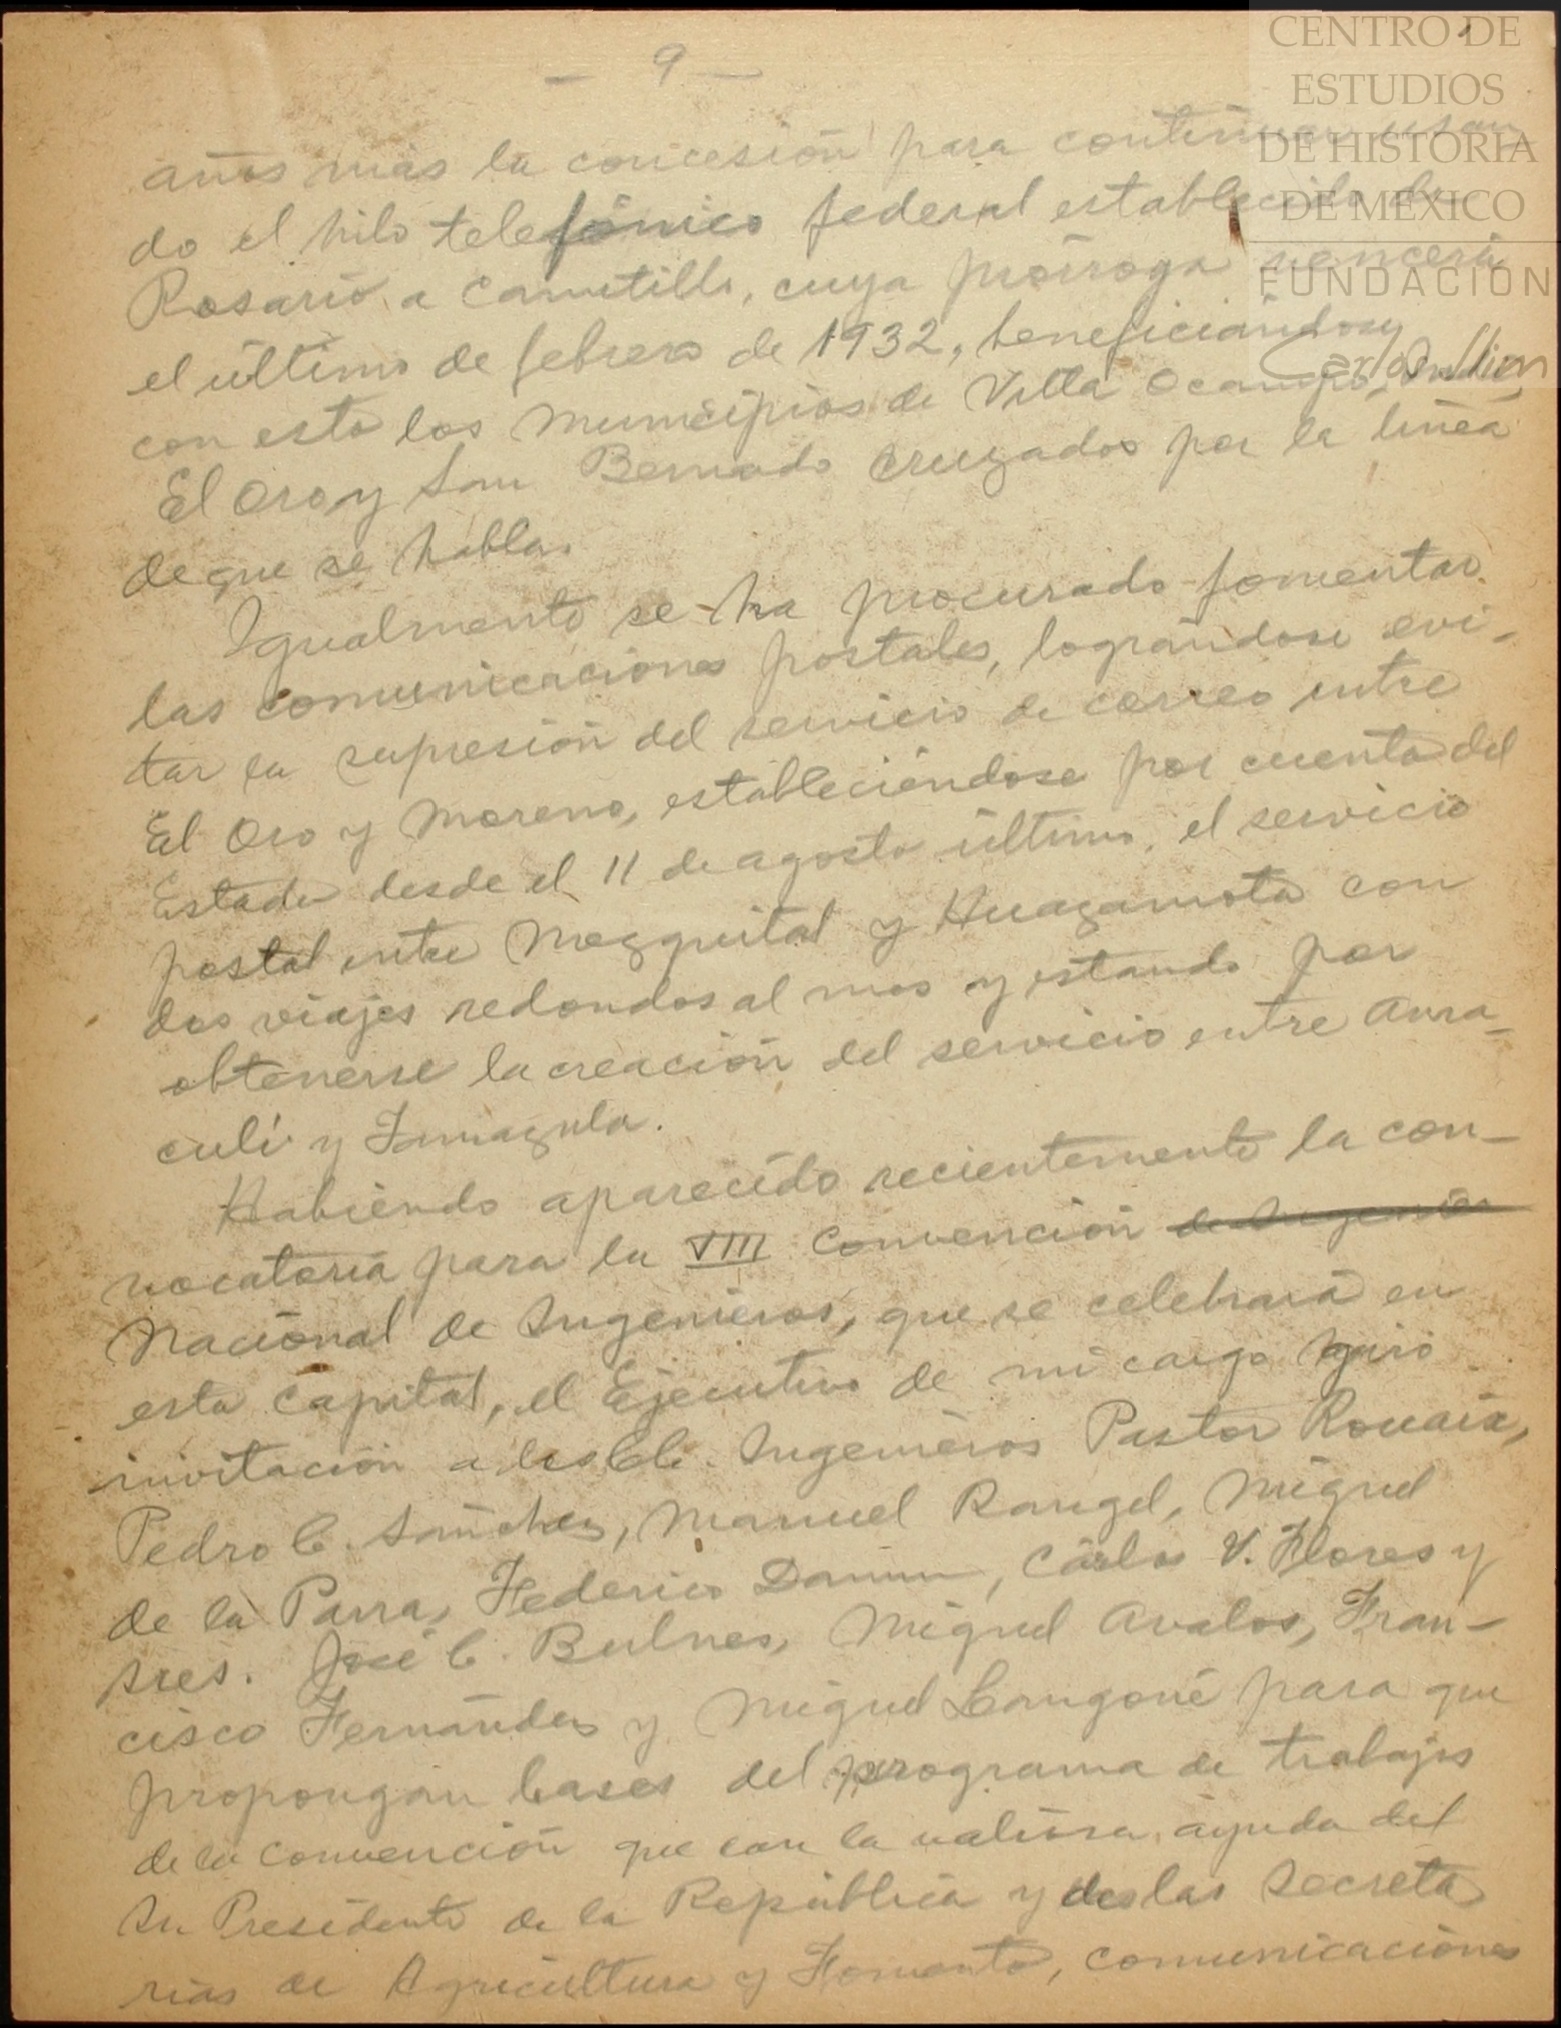 - 9 -
años más la concesión para continuar usan-
do el hilo telefónico federal establecido de
Rosario a Canutillo, cuya prórroga vencerá
el último de febrero de 1932, beneficiándose
con esto los Municipios de Villa Ocampo,
El Oro y San Bernardo cruzados por la línea
de que se habla.
Igualmente se ha procurado fomentar
las comunicaciones postales, lográndose evi-
tar la supresión del servicio de correo entre
El Oro y Moreno, estableciéndose por cuenta del
Estado desde el 11 de agosto último, el servicio
postal entre Mezquital y Huazamota con
dos viajes redondos al mes y estando por
obtenerse la creación del servicio entre Ama-
culí y Tamazula.
Habiendo aparecido recientemente la con-
vocatoria para la VIII Convención de Ingenieros
Nacional de Ingenieros, que se celebrará en
esta Capital, el Ejecutivo de mi cargo giró
invitación a los CC. Ingenieros Pastor Rouaix,
Pedro C. Sánchez, Manuel Rangel, Miguel
de la Parra, Federico Damm, Cárlos V. Flores y
Sres. José C. Bulnes, Miguel Avalos, Fran-
cisco Fernández y Miguel Langoné para que
propongan bases del programa de trabajos
de la Convención que con la valiosa ayuda del
Sr. Presidente de la República y de las Secreta
rías de Agricultura y Fomento, Comunicaciones
CENTRO DE
ESTUDIOS
DE HISTORIA
DE MÉXICO
FUNDACIÓN
Carlos Slim